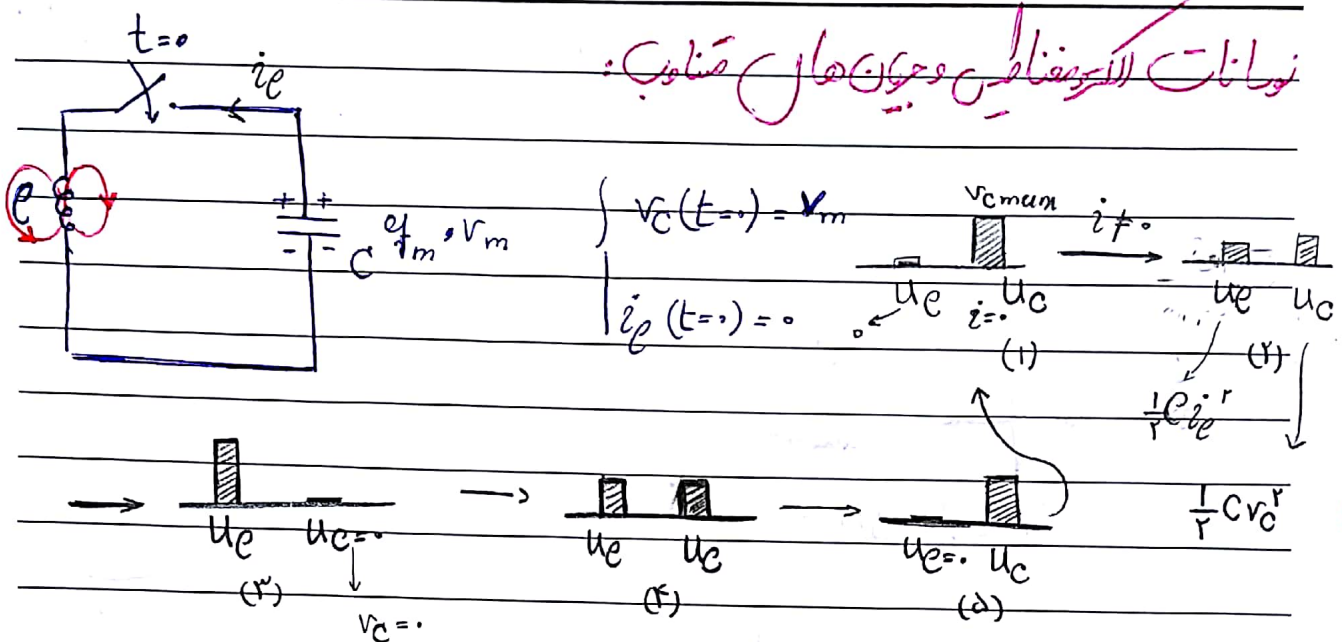 نوسانات الکترومغناطیس و جریان های متناوب:
t=۰
i_l
l
+ +
- -
C
q_m , v_m
v_C(t=۰) = v_m
i_l(t=۰) = ۰
v_cmax
i≠۰
u_l u_C
۰ i=۰
(۱)
u_l u_C
(۲)
½ l i_l^۲
½ C v_C^۲
u_l u_C=۰
(۳)
v_C=۰
u_l u_C
(۴)
u_l=۰ u_C
(۵)